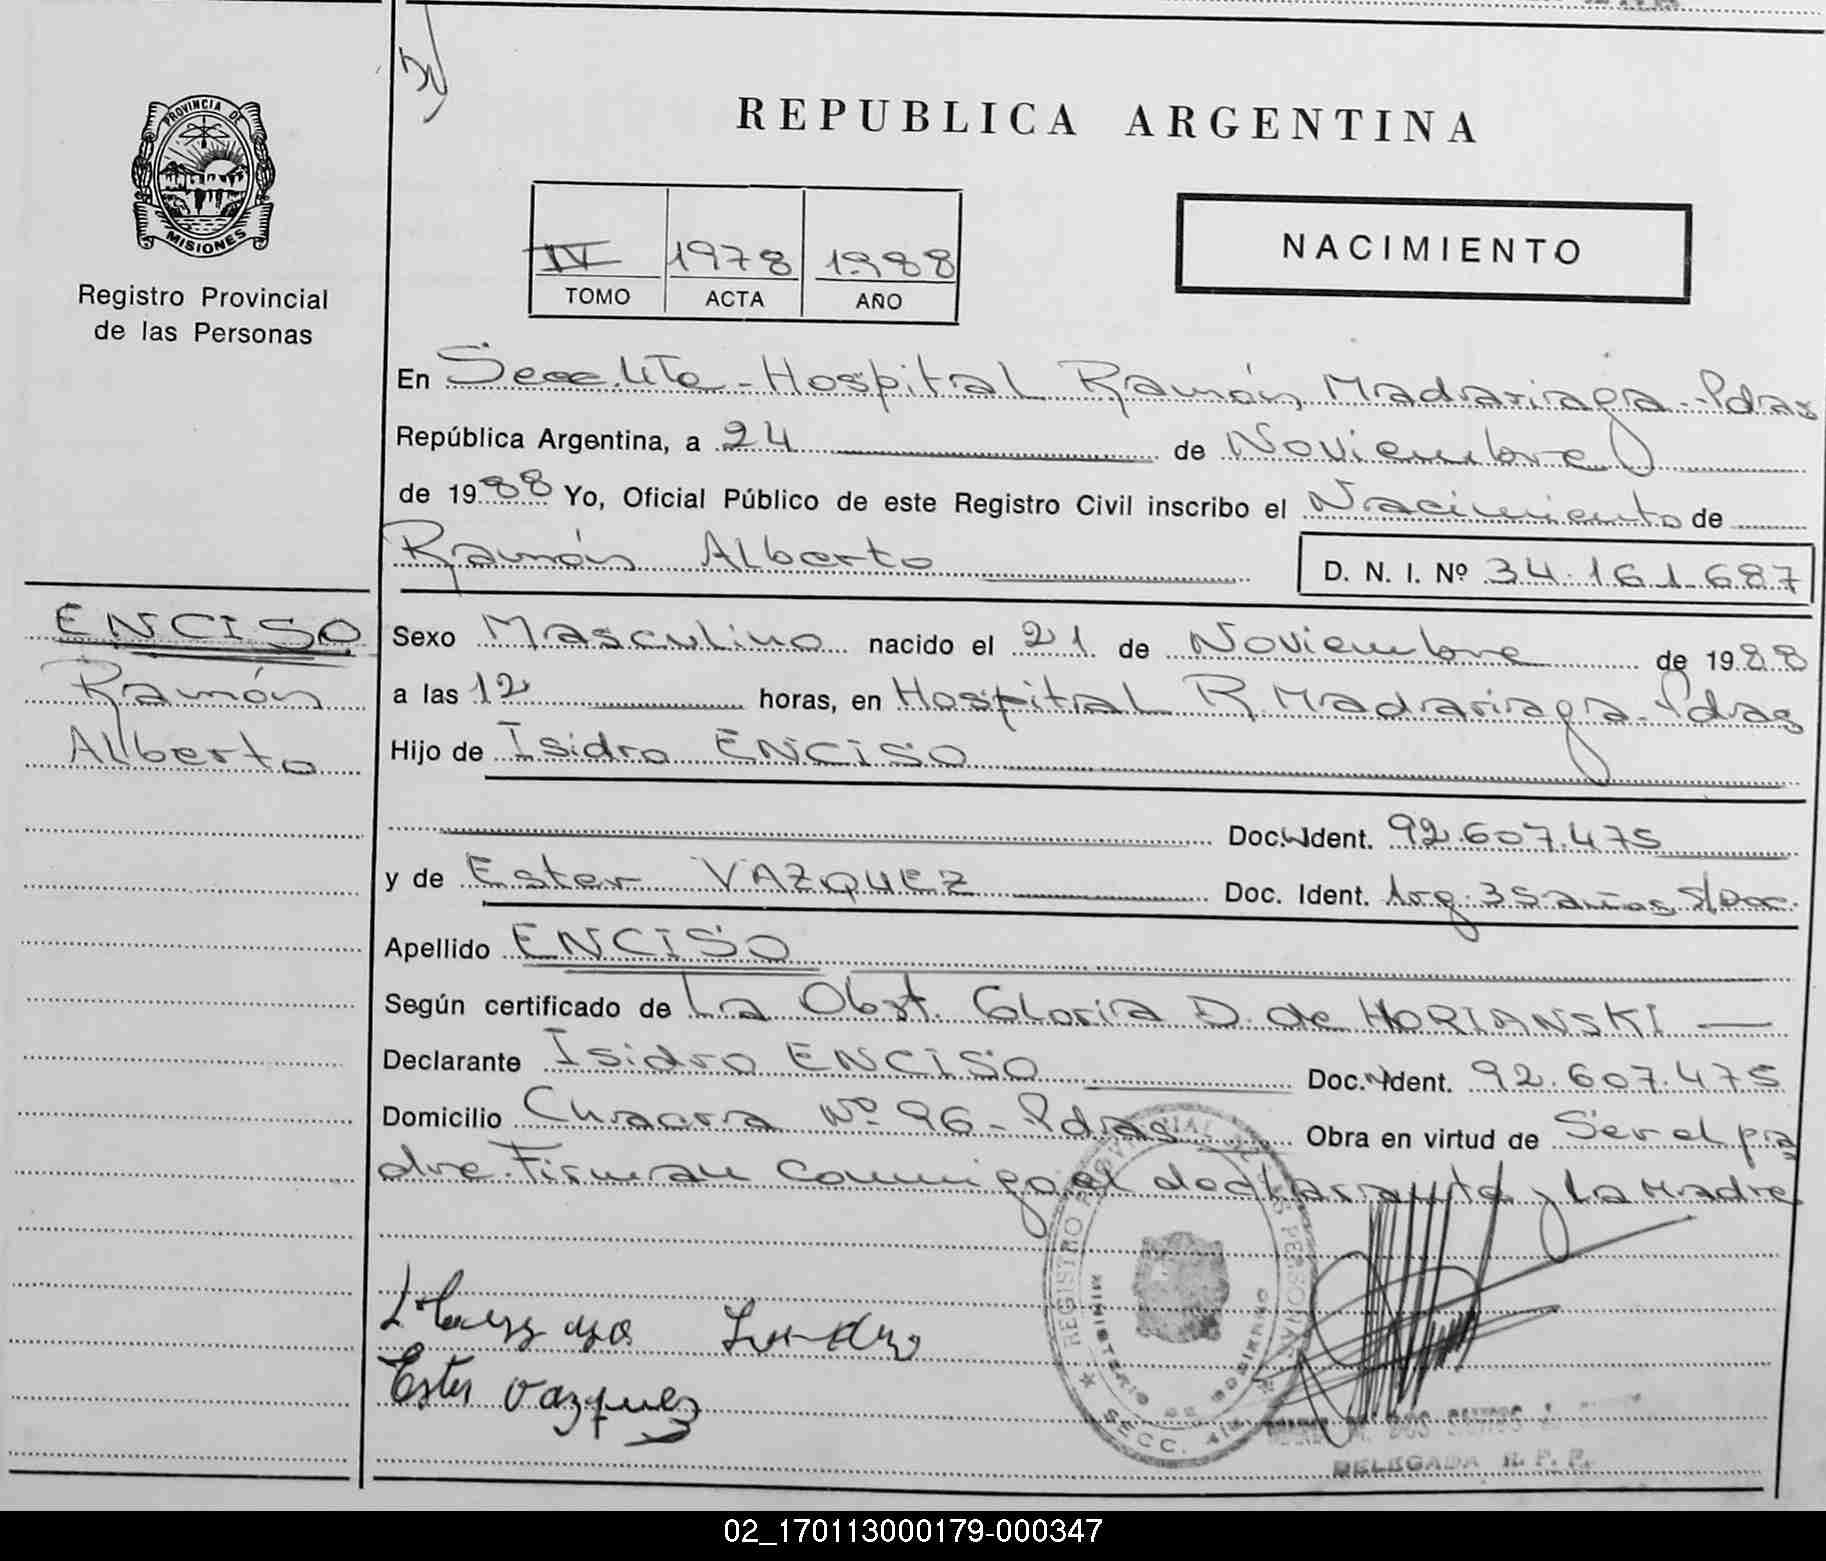 PROVINCIA DE
MISIONES
Registro Provincial
de las Personas
REPUBLICA ARGENTINA
IV 1978 1988
TOMO ACTA AÑO
NACIMIENTO
En Secc. 4ta - Hospital Ramón Madariaga - Pdas
República Argentina, a 24 de Noviembre
de 1988 Yo, Oficial Público de este Registro Civil inscribo el Nacimiento de
Ramón Alberto
D. N. I. Nº 34.161.687
ENCISO
Ramón
Alberto
Sexo Masculino nacido el 21 de Noviembre de 1988
a las 12 horas, en Hospital R. Madariaga - Pdas
Hijo de Isidro ENCISO
Doc. Ident. 92.607.475
y de Ester VAZQUEZ Doc. Ident. Arg. 35 años S/Doc.
Apellido ENCISO
Según certificado de La Obst. Gloria D. de HORIANSKI
Declarante Isidro ENCISO Doc. Ident. 92.607.475
Domicilio Chacra Nº 96 - Pdas Obra en virtud de Ser el pa
dre. Firman conmigo el declarante y la Madre
REGISTRO PROVINCIAL DE LAS PERSONAS
MINISTERIO DE GOBIERNO
SECC. 4ta
Ester Vazquez
DOS SANTOS
DELEGADA R. P. P.
02_170113000179-000347